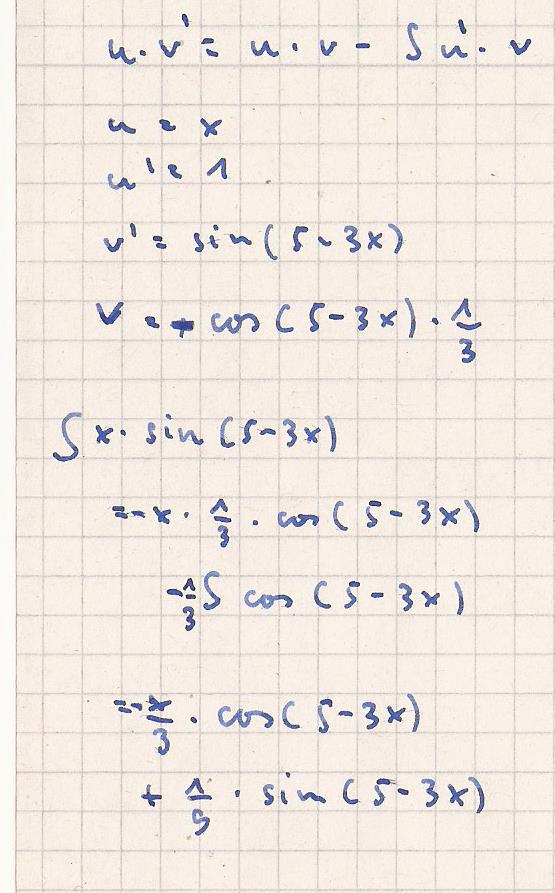 u · v' = u · v - ∫ u' · v
u = x
u' = 1
v' = sin(5-3x)
v = + cos(5-3x) · 1/3
∫ x · sin(5-3x)
= -x · 1/3 · cos(5-3x)
-1/3 ∫ cos(5-3x)
= -x/3 · cos(5-3x)
+ 1/9 · sin(5-3x)